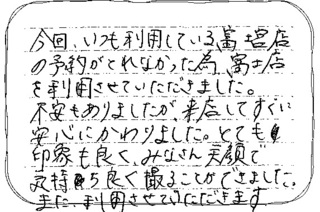 今回、いつも利用している富士宮店
の予約がとれなかった為、富士店
を利用させていただきました。
不安もありましたが、来店してすぐに
安心にかわりました。とても
印象も良く、みなさん笑顔で
気持ち良く撮ることができました。
また、利用させていただきます